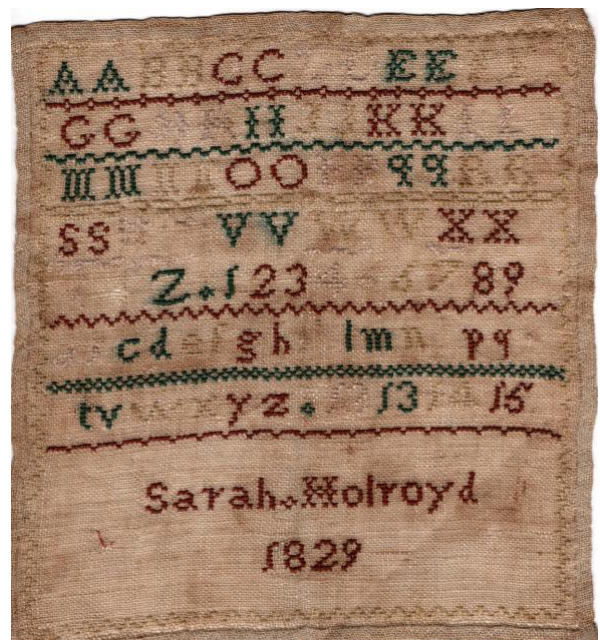 A A B B C C E E
G G H H I I K K
M M N N O O q q R R
S S V V W X X
Z . 1 2 3 4 6 7 8 9
c d e f g h l m n p q
t v w x y z . 13 14 15
Sarah Holroyd
1829